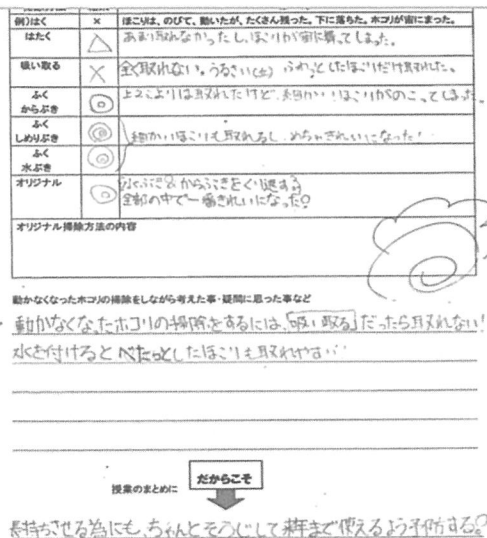 例)はく × ほこりは、のびて、動いたが、たくさん残った。下に落ちた。ホコリが宙にまった。
はたく △ あまり取れなかったし、ほこりが宙に舞ってしまった。
吸い取る × 全く取れない。うるさい(土) ふわっとしたほこりだけ取れた。
ふく
からぶき ◎ 上2こよりは取れたけど、細かいほこりがのこってしまった。
ふく
しめりぶき ◎ 細かいほこりも取れるし、めちゃきれいになった!
ふく
水ぶき ◎
オリジナル ◎ 水ぶき&からぶきをくり返す。
全部の中で一番きれいになった。
オリジナル掃除方法の内容
動かなくなったホコリの掃除をしながら考えた事・疑問に思った事など
・動かなくなったホコリの掃除をするには、「吸い取る」だったら取れない!
水を付けるとべたっとしたほこりも取れやすい
だからこそ
授業のまとめに
長持ちさせる為にも、ちゃんとそうじして来年まで使えるよう予防する。